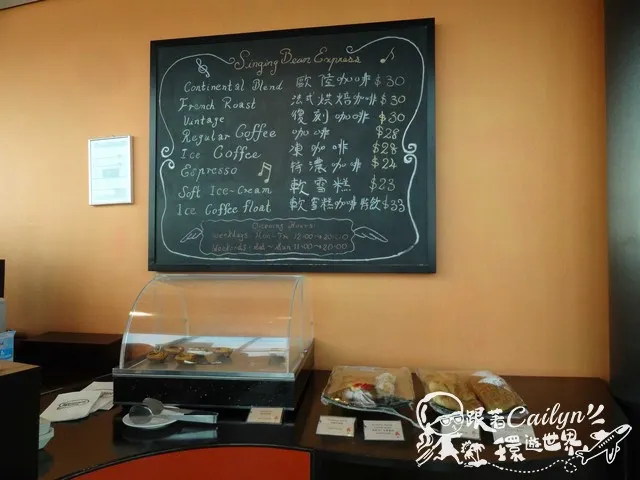 Singing Bean Express
Continental Blend 歐陸咖啡 $30
French Roast 法式烘焙咖啡 $30
Vintage 復刻咖啡 $30
Regular Coffee 咖啡 $28
Ice Coffee 凍咖啡 $28
Espresso 特濃咖啡 $24
Soft Ice-Cream 軟雪糕 $23
Ice Coffee float 軟雪糕咖啡特飲 $33
Opening Hours
Weekdays: Mon-Fri 12:00~20:00
Weekends: Sat-Sun 11:00~20:00
跟著Cailyn
環遊世界